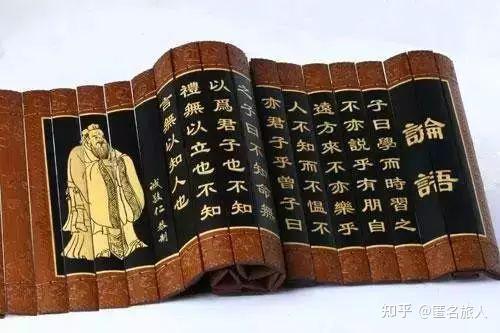 論語
子曰學而時習之
不亦説乎有朋自
遠方來不亦樂乎
人不知而不愠不
亦君子乎曾子曰
之子曰不知命無
以爲君子也不知
禮無以立也不知
言無以知人也
知乎 @匿名旅人